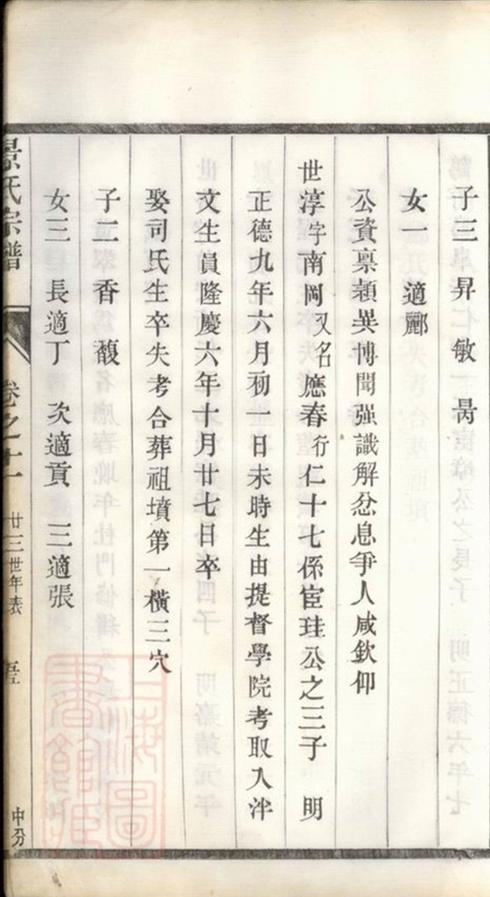 子三 昇 敏 暠
女一 適酈
公資禀穎異博聞强識解忿息爭人咸欽仰
世淳字南岡又名應春行仁十七係宦珪公之三子 明
正德九年六月初一日未時生由提督學院考取入泮
文生員隆慶六年十月廿七日卒
娶司氏生卒失考合葬祖墳第一橫三穴
子二 香 馥
女三 長適丁 次適貢 三適張
景氏宗譜 卷之十一 廿三世年表 中分
上海圖書館藏